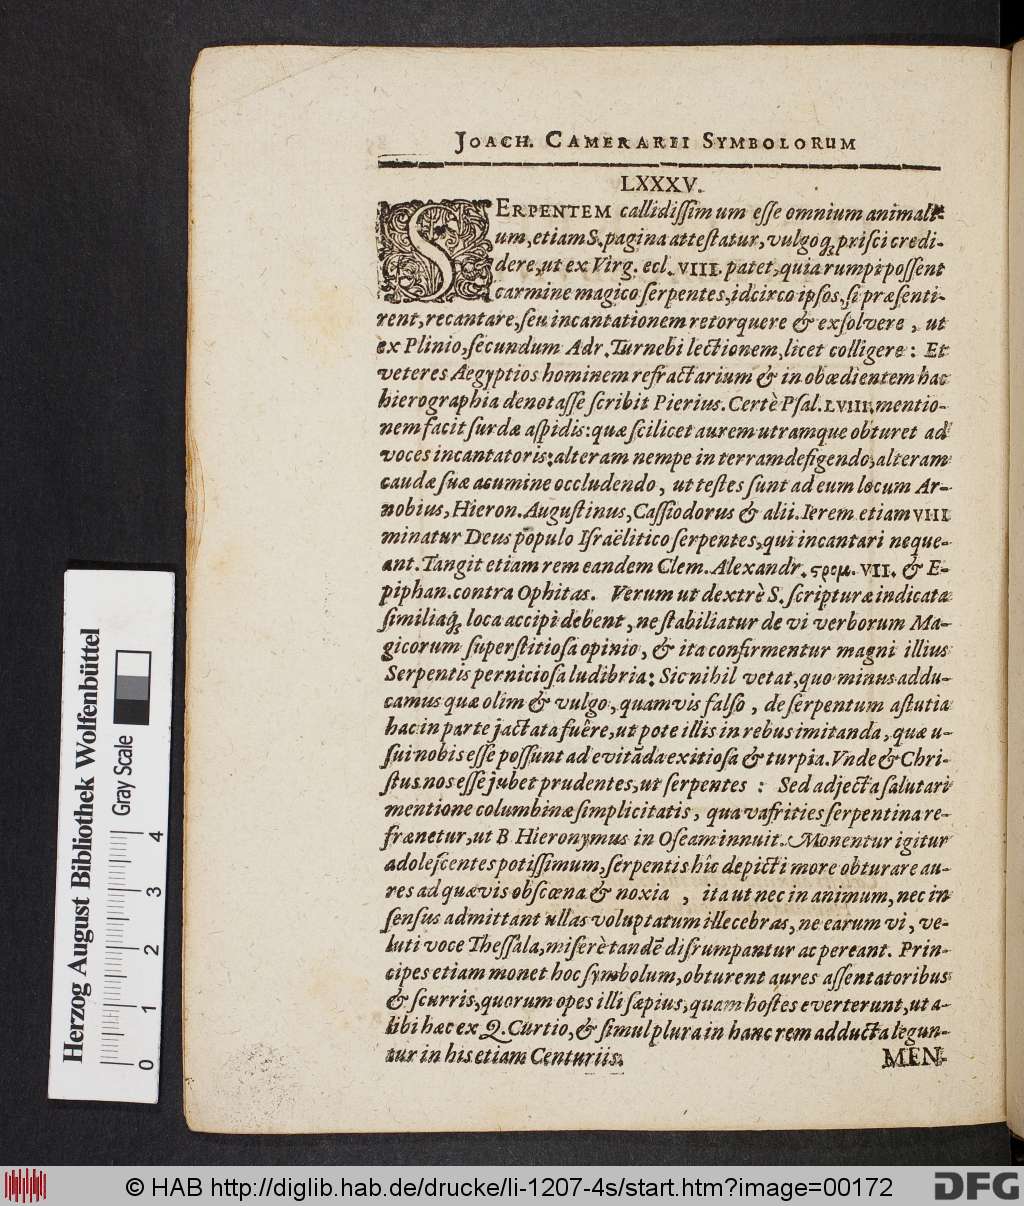 JOACH. CAMERARII SYMBOLORUM
LXXXV.
SERPENTEM callidiſſimum eſſe omnium animali-
um, etiam S. pagina atteſtatur, vulgoq; priſci credi-
dere, ut ex Virg. ecl. VIII. patet, quia rumpi poſſent
carmine magico ſerpentes, idcirco ipſos, ſi præſenti-
rent, recantare, ſeu incantationem retorquere & exſolvere, ut
ex Plinio, ſecundum Adr. Turnebi lectionem, licet colligere: Et
veteres Aegyptios hominem refractarium & inobœdientem hac
hierographia denotaſſe ſcribit Pierius. Certè Pſal. LVIII. mentio-
nem facit ſurdæ aſpidis: quæ ſcilicet aurem utramque obturet ad
voces incantatoris: alteram nempe in terram defigendo, alteram
caudæ ſuæ acumine occludendo, ut teſtes ſunt ad eum locum Ar-
nobius, Hieron. Auguſtinus, Caſſiodorus & alii. Ierem etiam VIII
minatur Deus populo Iſraëlitico ſerpentes, qui incantari neque-
ant. Tangit etiam rem eandem Clem. Alexandr. ϛρομ. VII. & E-
piphan. contra Ophitas. Verum ut dextrè S. ſcripturæ indicata
ſimiliaq; loca accipi debent, ne ſtabiliatur de vi verborum Ma-
gicorum ſuperſtitioſa opinio, & ita confirmentur magni illius
Serpentis pernicioſa ludibria: Sic nihil vetat, quo minus addu-
camus quæ olim & vulgo, quamvis falſo, de ſerpentum aſtutia
hac in parte jactata fuêre, ut pote illis in rebus imitanda, quæ u-
ſui nobis eſſe poſſunt ad evitãda exitioſa & turpia. Vnde & Chri-
ſtus nos eſſe jubet prudentes, ut ſerpentes : Sed adjecta ſalutari
mentione columbinæ ſimplicitatis, qua vafrities ſerpentina re-
frænetur, ut B Hieronymus in Oſeam innuit. Monentur igitur
adoleſcentes potiſſimum, ſerpentis hîc depicti more obturare au-
res ad quævis obſcœna & noxia, ita ut nec in animum, nec in
ſenſus admittant ullas voluptatum illecebras, ne earum vi, ve-
luti voce Theſſala, miſerè tandẽ diſrumpantur ac pereant. Prin-
cipes etiam monet hoc ſymbolum, obturent aures aſſentatoribus
& ſcurris, quorum opes illi ſæpius, quam hoſtes everterunt, ut a-
libi hæc ex Q. Curtio, & ſimul plura in hanc rem adducta legun-
tur in his etiam Centuriis.
MEN-
Herzog August Bibliothek Wolfenbüttel
Gray Scale
0 1 2 3 4
© HAB http://diglib.hab.de/drucke/li-1207-4s/start.htm?image=00172
DFG